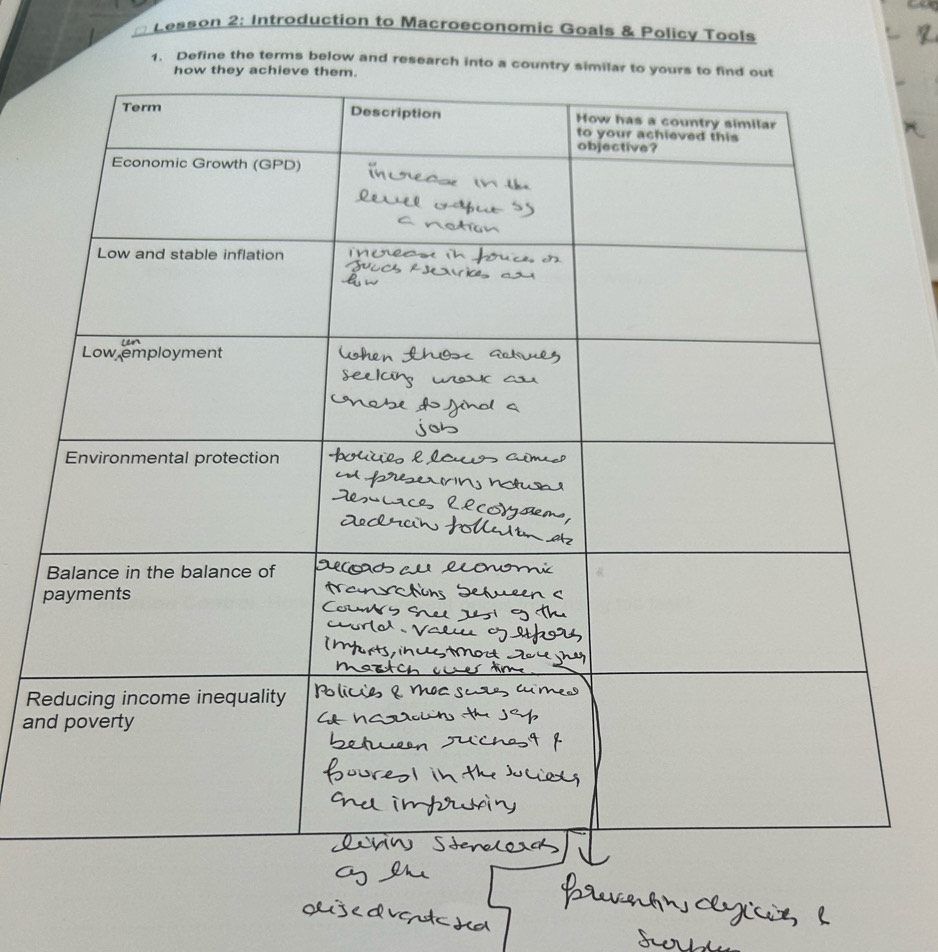 Lesson 2: Introduction to Macroeconomic Goals & Policy Tools
1. Define the terms below and research into a country similar to yours to find out
how they achieve them.
Term
Description
How has a country similar
to your achieved this
objective?
Economic Growth (GPD)
increase in the
level output by
a nation
Low and stable inflation
increase in prices of
goods & services are
low
un
Low employment
when those actively
seeking work are
unable to find a
job
Environmental protection
policies & laws aimed
at preserving natural
resources & ecosystems,
pollution etc
Balance in the balance of
payments
records all economic
transactions between a
country and rest of the
world. Value of exports
imports, investment
match over time
Reducing income inequality
and poverty
Policies & measures aimed
at narrowing the gap
between richest &
poorest in the society
and improving
living standards
of the
disadvantaged
preventing deficits &